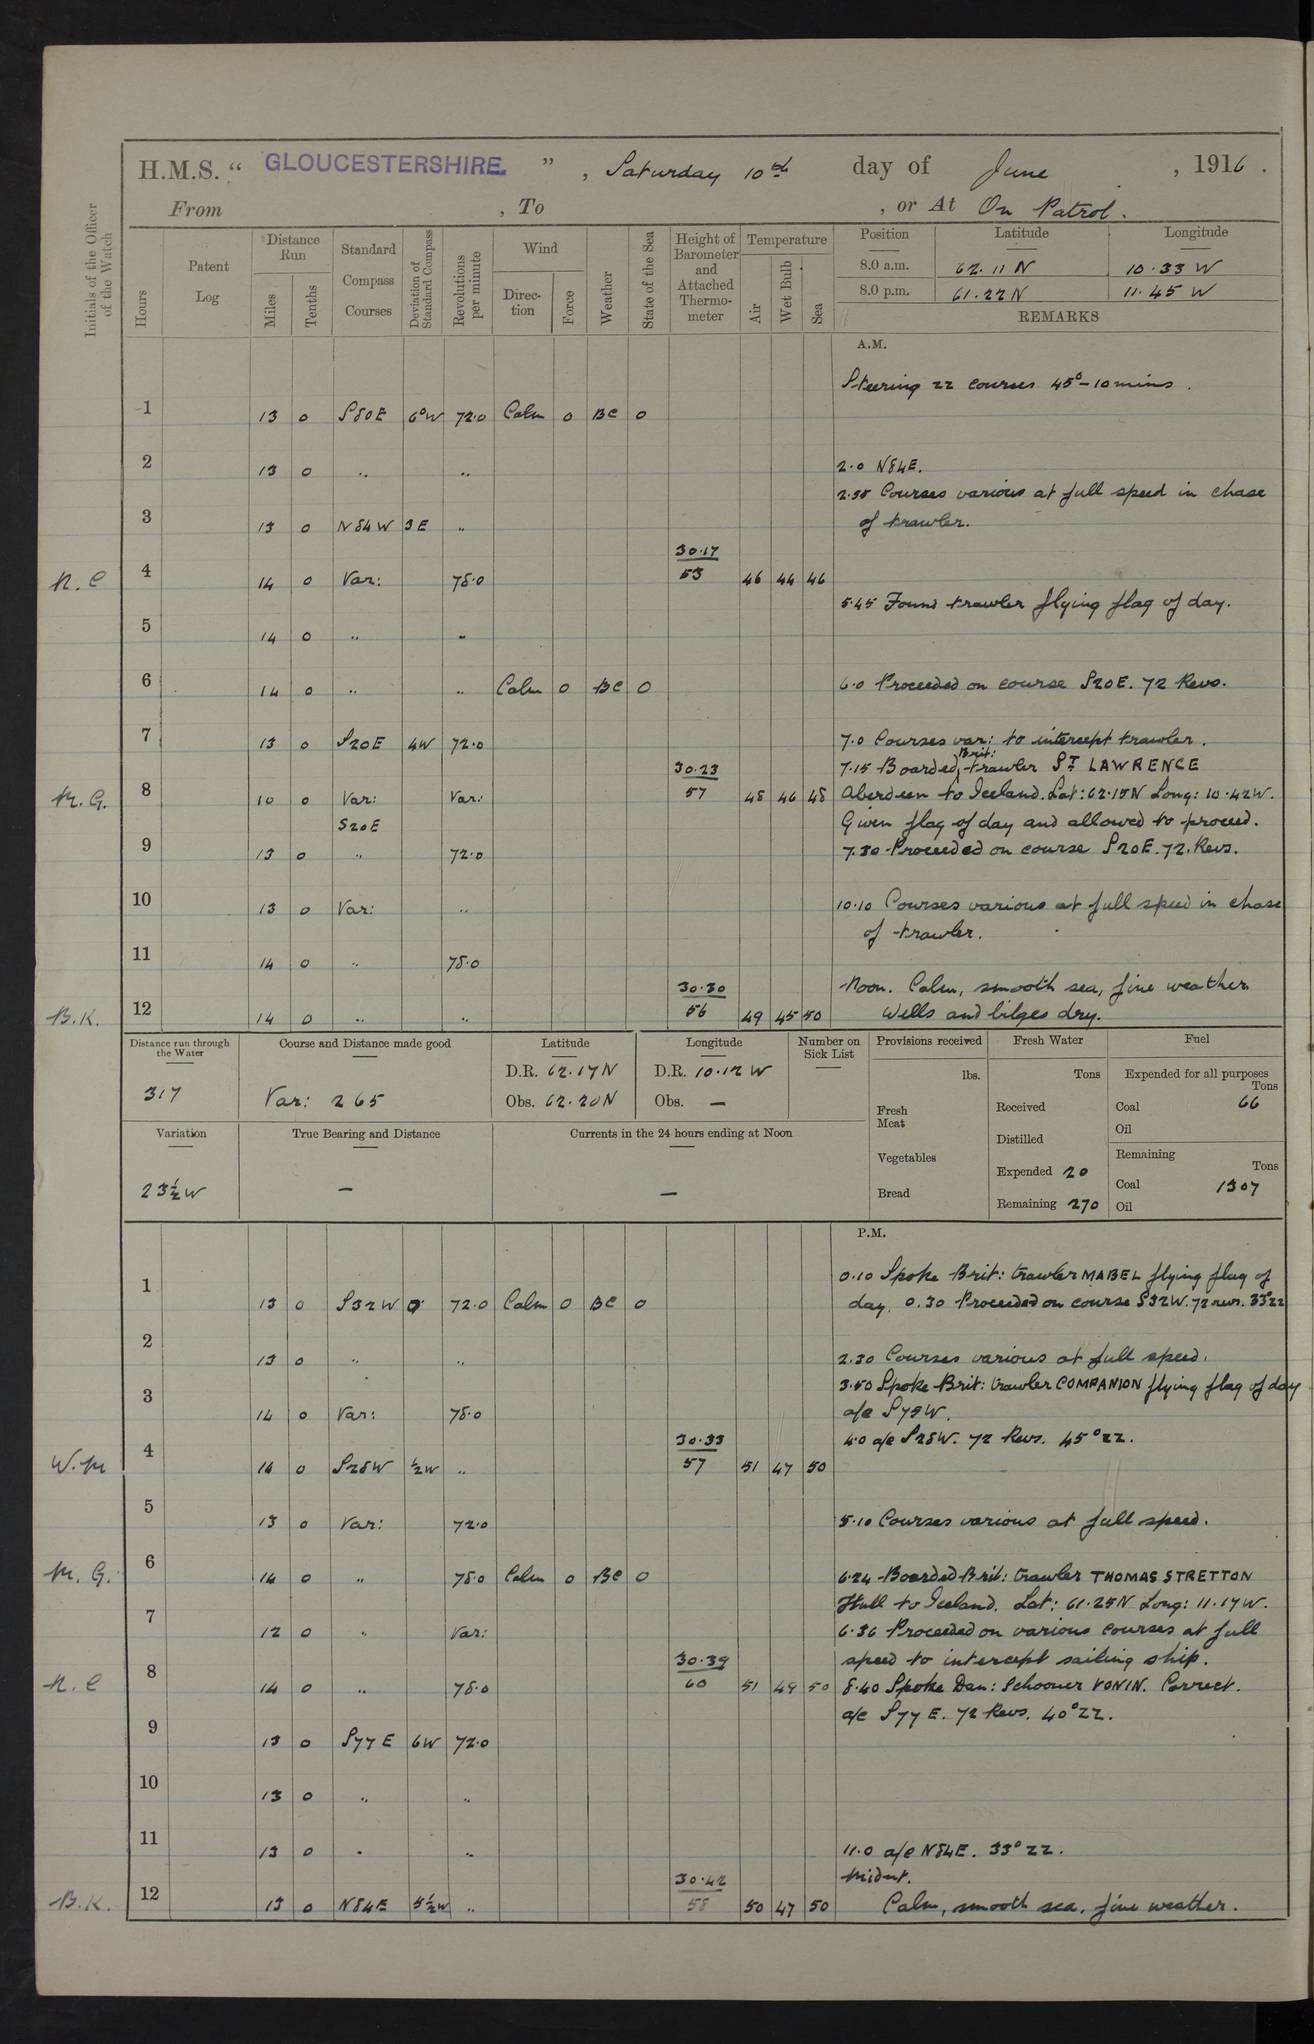 H.M.S. “ GLOUCESTERSHIRE. ” , Saturday 10th day of June , 1916 .
From , To , or At On Patrol .
Initials of the Officer of the Watch
Hours
Patent Log
Distance Run
Miles
Tenths
Standard Compass Courses
Deviation of Standard Compass
Revolutions per minute
Wind
Direction
Force
Weather
State of the Sea
Height of Barometer and Attached Thermometer
Temperature
Air
Wet Bulb
Sea
Position Latitude Longitude
8.0 a.m. 62.11 N 10.33 W
8.0 p.m. 61.22 N 11.45 W
REMARKS
A.M.
Steering zz courses 45°-10 mins.
1 13 0 S80E 6°W 72.0 Calm 0 BC 0
2 13 0 " " 2.0 N84E.
2.38 Courses various at full speed in chase
3 13 0 N84W 3E " of trawler.
30.17
N.C 4 14 0 Var: 78.0 53 46 44 46
5.45 Found trawler flying flag of day.
5 14 0 " "
6 14 0 " " Calm 0 BC 0 6.0 Proceeded on course S20E. 72 Revs.
7 13 0 S20E 4W 72.0 7.0 Courses var: to intercept trawler.
30.23 7.15 Boarded Brit: trawler ST LAWRENCE
M.G. 8 10 0 Var: Var: 57 48 46 48 Aberdeen to Iceland. Lat: 62.15N Long: 10.42W.
S20E Given flag of day and allowed to proceed.
9 13 0 " 72.0 7.30 Proceeded on course S20E. 72. Revs.
10 13 0 Var: " 10.10 Courses various at full speed in chase
of trawler.
11 14 0 " 78.0
30.30 Noon. Calm, smooth sea, fine weather
B.K. 12 14 0 " " 56 49 45 50 Wells and bilges dry.
Distance run through the Water
317
Course and Distance made good
Var: 265
Latitude
D.R. 62.17N
Obs. 62.20N
Longitude
D.R. 10.12 W
Obs. —
Number on Sick List
Provisions received
lbs.
Fresh Meat
Vegetables
Bread
Fresh Water
Tons
Received
Distilled
Expended 20
Remaining 270
Fuel
Expended for all purposes
Tons
Coal 66
Oil
Remaining
Tons
Coal 1307
Oil
Variation
23½W
True Bearing and Distance
—
Currents in the 24 hours ending at Noon
—
P.M.
0.10 Spoke Brit: trawler MABEL flying flag of
1 13 0 S32W 0 72.0 Calm 0 BC 0 day. 0.30 Proceeded on course S32W. 72 revs. 33°zz
2 13 0 " " 2.30 Courses various at full speed.
3.50 Spoke Brit: trawler COMPANION flying flag of day
3 14 0 Var: 78.0 a/c S75W.
30.33 4.0 a/c S28W. 72 Revs. 45°zz.
W.M 4 14 0 S28W ½W " 57 51 47 50
5 13 0 Var: 72.0 5.10 Courses various at full speed.
M.G. 6 14 0 " 78.0 Calm 0 BC 0 6.24 Boarded Brit: trawler THOMAS STRETTON
Hull to Iceland. Lat: 61.25N Long: 11.17W.
7 12 0 " Var: 6.36 Proceeded on various courses at full
30.39 speed to intercept sailing ship.
N.C 8 14 0 " 78.0 60 51 49 50 8.40 Spoke Dan: Schooner VONIN. Correct.
a/c S77E. 72 Revs. 40°zz.
9 13 0 S77E 6W 72.0
10 13 0 " "
11 13 0 " " 11.0 a/c N84E. 33°zz.
30.42 Midnt.
B.K. 12 13 0 N84E 5½W " 58 50 47 50 Calm, smooth sea, fine weather.